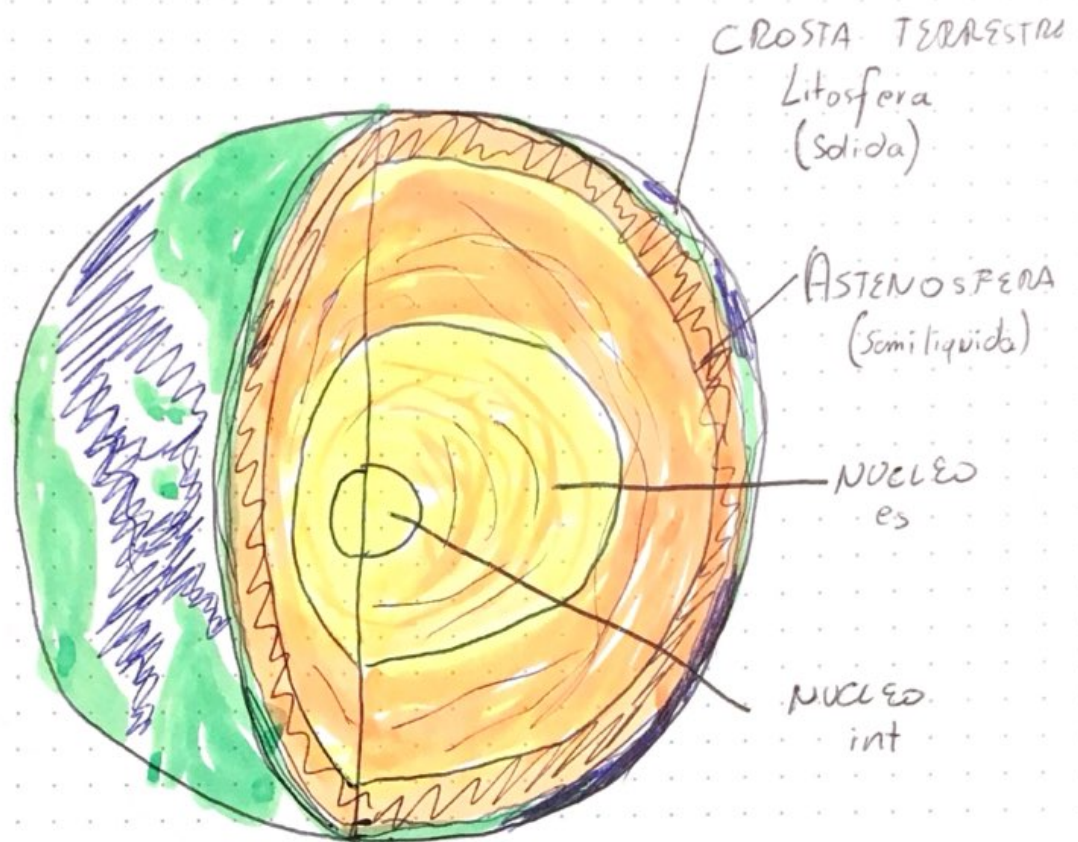 CROSTA TERRESTRE
Litosfera
(Solida)
ASTENOSFERA
(Semiliquida)
NUCLEO
es
NUCLEO
int